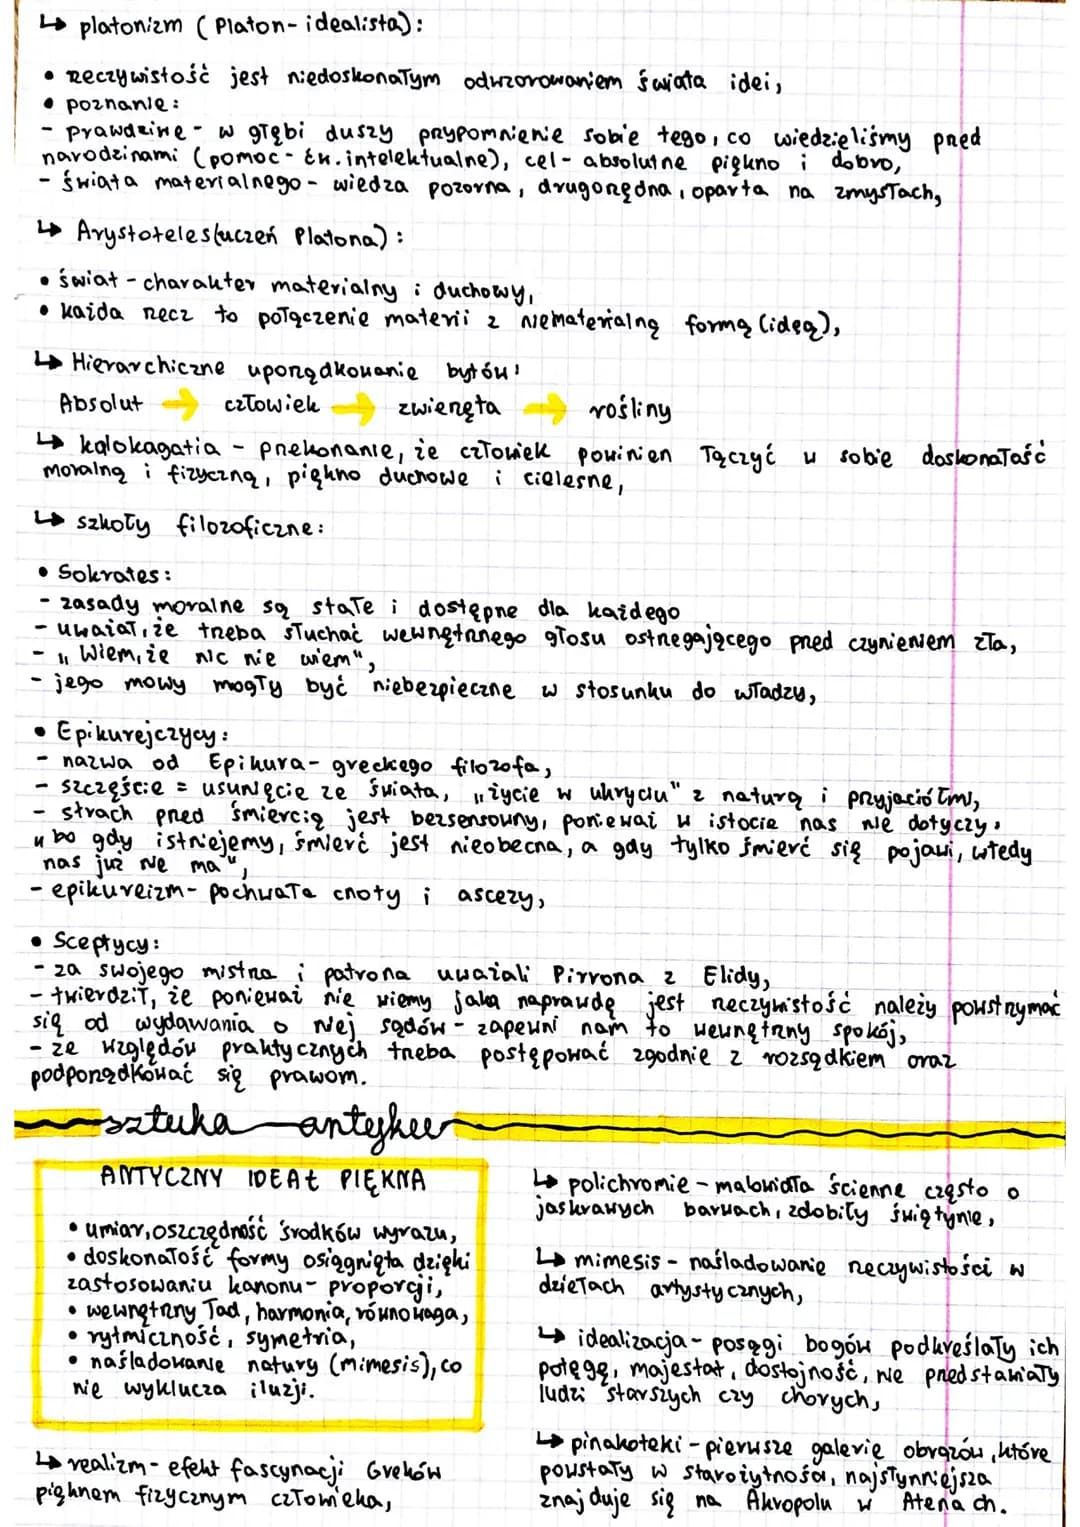 ↳ platonizm (Platon - idealista):
• Rzeczywistość jest niedoskonałym odwzorowaniem świata idei,
• poznanie:
- prawdziwe - w głębi duszy przypomnienie sobie tego, co wiedzieliśmy przed
narodzinami (pomoc - ćw. intelektualne), cel - absolutne piękno i dobro,
- świata materialnego - wiedza pozorna, drugorzędna, oparta na zmysłach,
↳ Arystoteles (uczeń Platona):
• świat - charakter materialny i duchowy,
• każda rzecz to połączenie materii z niematerialną formą (ideą),
↳ Hierarchiczne uporządkowanie bytów:
Absolut → człowiek → zwierzęta → rośliny
↳ kalokagatia - przekonanie, że człowiek powinien łączyć w sobie doskonałość
moralną i fizyczną, piękno duchowe i cielesne,
↳ szkoły filozoficzne:
• Sokrates:
- zasady moralne są stałe i dostępne dla każdego
- uważał, że trzeba słuchać wewnętrznego głosu ostrzegającego przed czynieniem zła,
- „Wiem, że nic nie wiem",
- jego mowy mogły być niebezpieczne w stosunku do władzy,
• Epikurejczycy:
- nazwa od Epikura - greckiego filozofa,
- szczęście = usunięcie ze świata, „życie w ukryciu" z naturą i przyjaciółmi,
- strach przed śmiercią jest bezsensowny, ponieważ w istocie nas nie dotyczy,
„bo gdy istniejemy, śmierć jest nieobecna, a gdy tylko śmierć się pojawi, wtedy
nas już nie ma",
- epikureizm - pochwała cnoty i ascezy,
• Sceptycy:
- za swojego mistrza i patrona uważali Pirrona z Elidy,
- twierdził, że ponieważ nie wiemy jaka naprawdę jest rzeczywistość należy powstrzymać
się od wydawania o niej sądów - zapewni nam to wewnętrzny spokój,
- ze względów praktycznych trzeba postępować zgodnie z rozsądkiem oraz
podporządkować się prawom.
sztuka antyku
ANTYCZNY IDEAŁ PIĘKNA
• umiar, oszczędność środków wyrazu,
• doskonałość formy osiągnięta dzięki
zastosowaniu kanonu - proporcji,
• wewnętrzny ład, harmonia, równowaga,
• rytmiczność, symetria,
• naśladowanie natury (mimesis), co
nie wyklucza iluzji.
↳ realizm - efekt fascynacji Greków
pięknem fizycznym człowieka,
↳ polichromie - malowidła ścienne często o
jaskrawych barwach, zdobiły świątynie,
↳ mimesis - naśladowanie rzeczywistości w
dziełach artystycznych,
↳ idealizacja - posągi bogów podkreślały ich
potęgę, majestat, dostojność, nie przedstawiały
ludzi starszych czy chorych,
↳ pinakoteki - pierwsze galerie obrazów, które
powstały w starożytności, najsłynniejsza
znajduje się na Akropolu w Atenach.